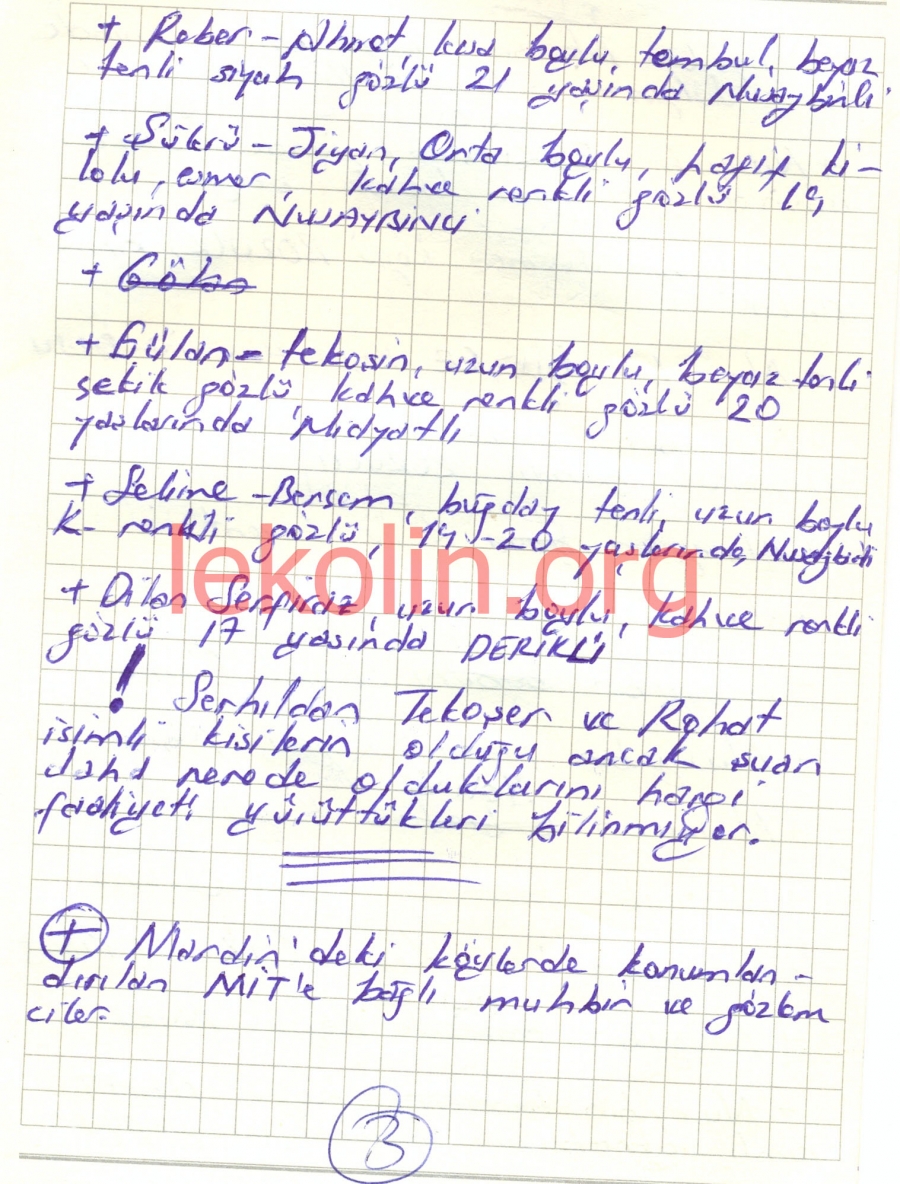 + Rober - Ahmet, kısa boylu, tombul, beyaz
tenli siyah gözlü 21 yaşında Nusaybinli
+ Şükrü - Jiyan, Orta boylu, hafif ki-
lolu, esmer, kahve renkli gözlü 19,
yaşında NUSAYBİNLİ
+ Gülan
+ Gülan - tekoşin, uzun boylu, beyaz tenli
sekik gözlü, kahve renkli gözlü 20
yaşlarında Midyatlı
+ Selime - Bersem, buğday tenli, uzun boylu
K- renkli gözlü, 19-20 yaşlarında, Nusaybinli
lekolin.org
+ Dilan uzun boylu, kahve renkli
gözlü 17 yaşında DERİKLİ
! Serhıldan Tekoşer ve Rohat
isimli kişilerin olduğu ancak şuan
daha nerede olduklarını hangi
faaliyeti yürüttükleri bilinmiyor.
+ Mardin'deki köylerde konumlan-
dırılan MİT'e bağlı muhbir ve gözlem
ciler
3